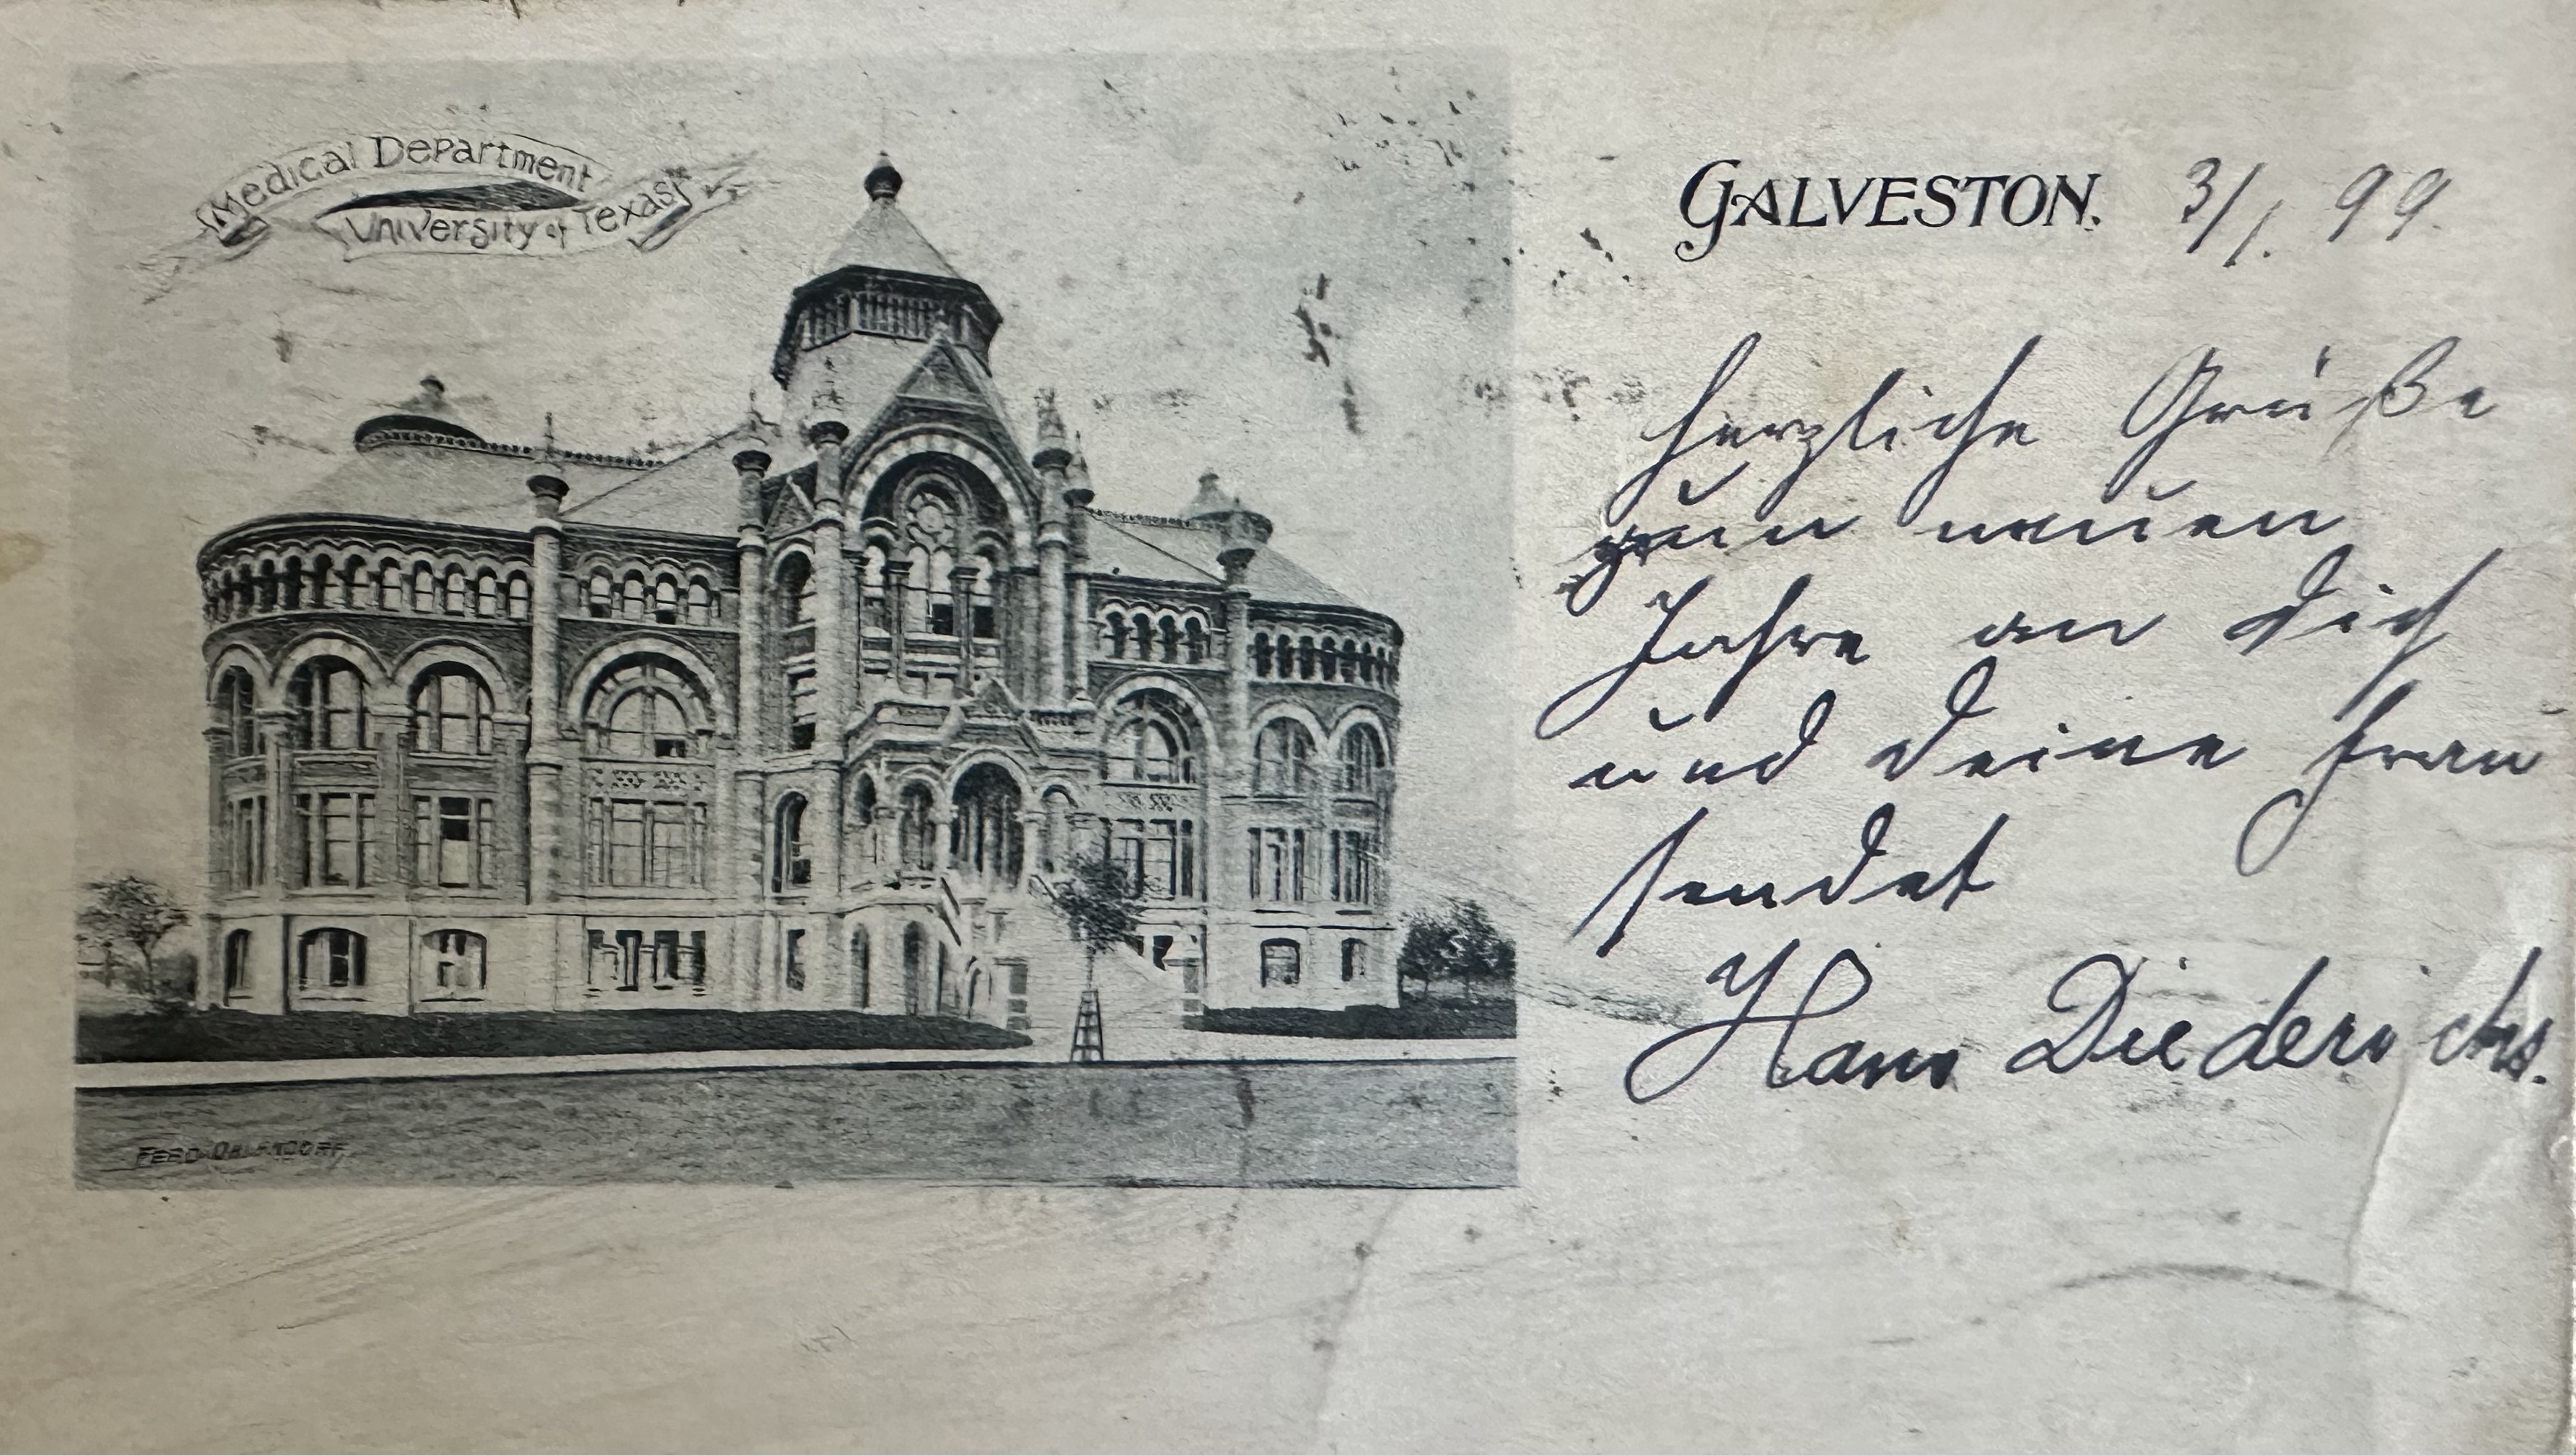 Medical Department
University of Texas
GALVESTON. 3/1. 99.
Herzliche Grüße
zum neuen
Jahre an Dich
und Deine Frau
sendet
Hans Diederichs.
FERD OHLENDORF